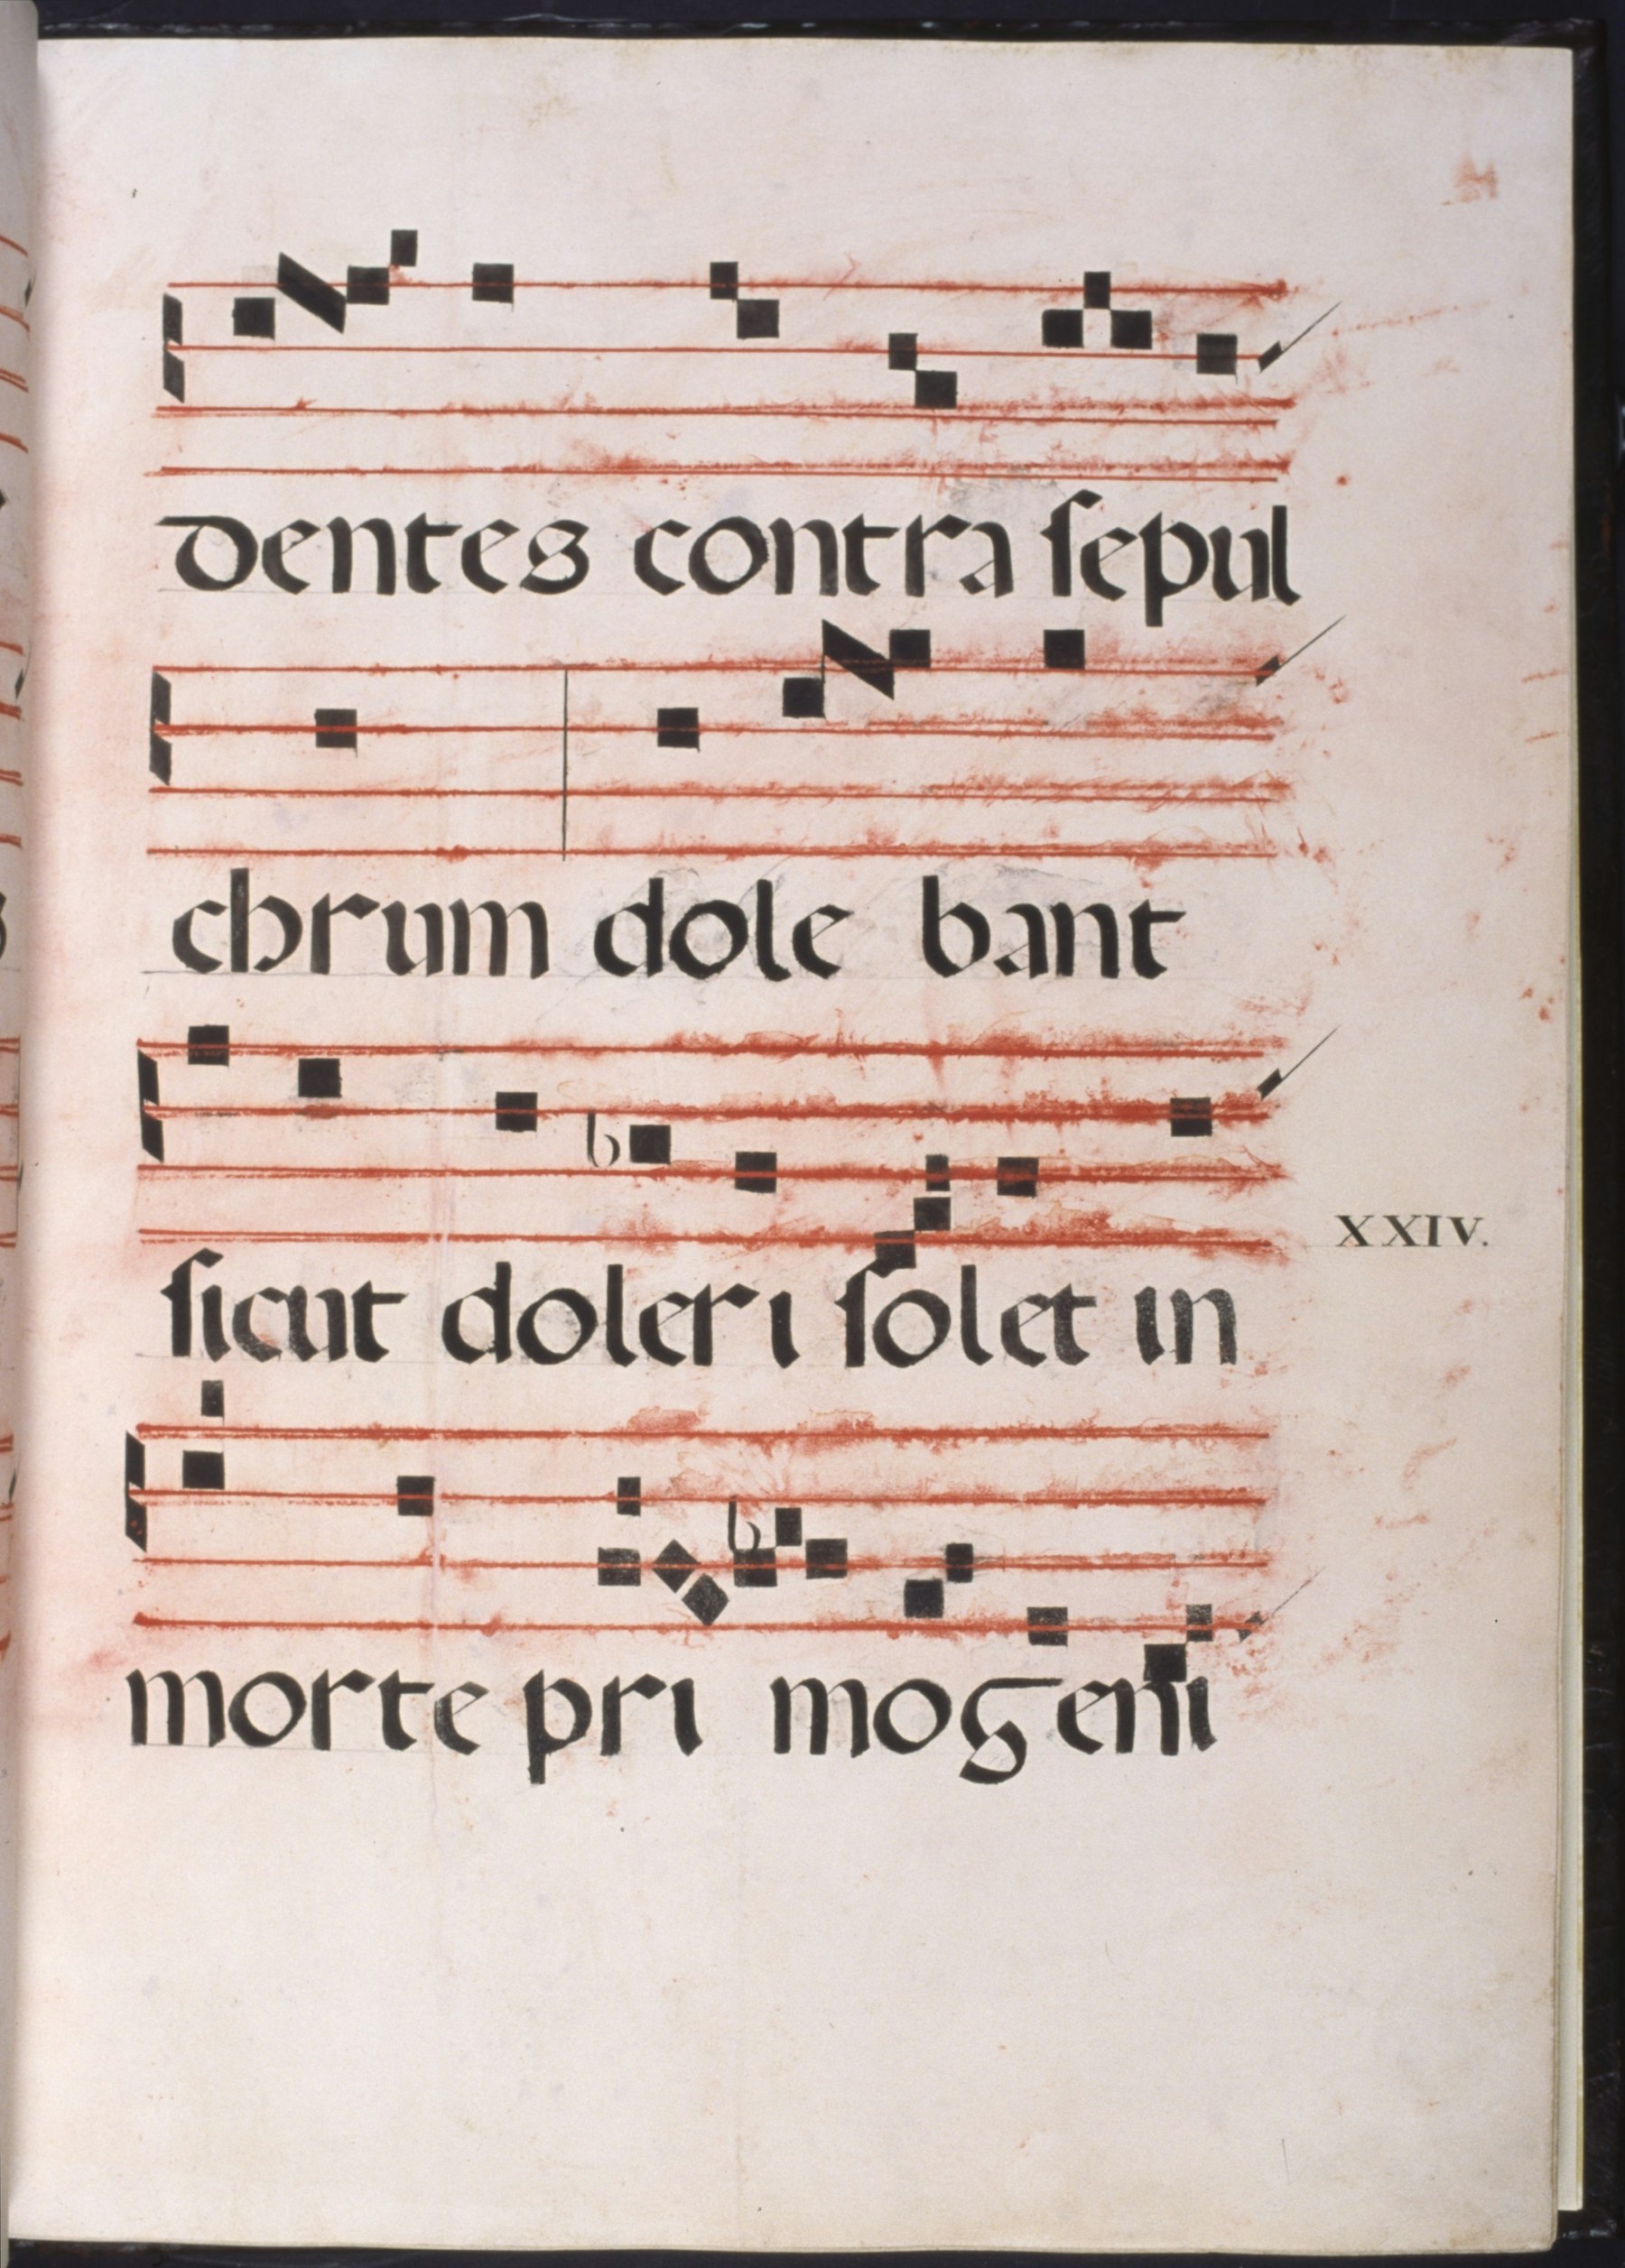 dentes contra ſepul
chrum dole bant
ſicut doleri ſolet in
XXIV.
morte pri mogeni